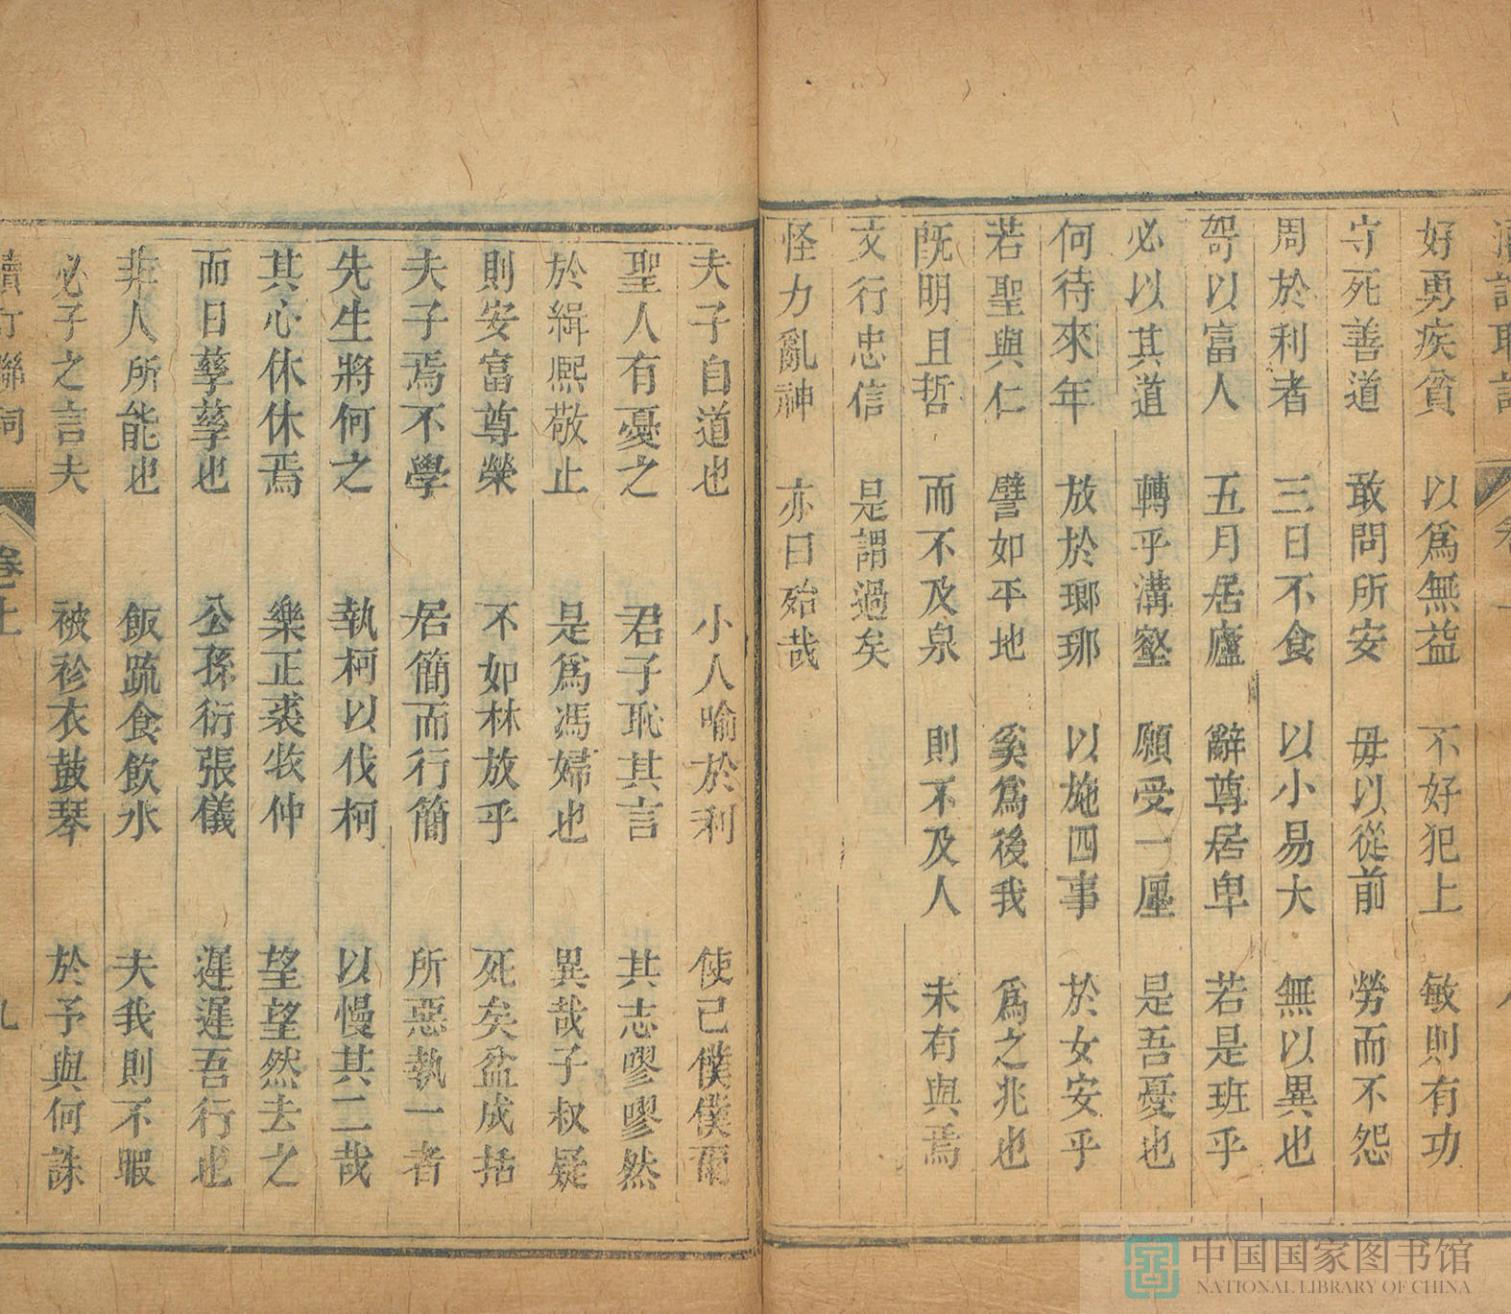 好勇疾貧　以爲無益　不好犯上　敏則有功
守死善道　敢問所安　毋以從前　勞而不怨
周於利者　三日不食　以小易大　無以異也
哿以富人　五月居廬　辭尊居卑　若是班乎
必以其道　轉乎溝壑　願受一廛　是吾憂也
何待來年　放於瑯琊　以施四事　於女安乎
若聖與仁　譬如平地　奚爲後我　爲之兆也
既明且哲　而不及泉　則不及人　未有與焉
文行忠信　是謂過矣
怪力亂神　亦曰殆哉
夫子自道也　小人喻於利　使己僕僕爾
聖人有憂之　君子恥其言　其志嘐嘐然
於緝熙敬止　是爲馮婦也　異哉子叔疑
則安富尊榮　不如林放乎　死矣盆成括
夫子焉不學　居簡而行簡　所惡執一者
先生將何之　執柯以伐柯　以慢其二哉
其心休休焉　樂正裘牧仲　望望然去之
而日孳孳也　公孫衍張儀　遲遲吾行也
非人所能也　飯疏食飲水　夫我則不暇
必子之言夫　被袗衣鼓琴　於予與何誅
讀訂聯詞　卷上　九
中国国家图书馆
NATIONAL LIBRARY OF CHINA